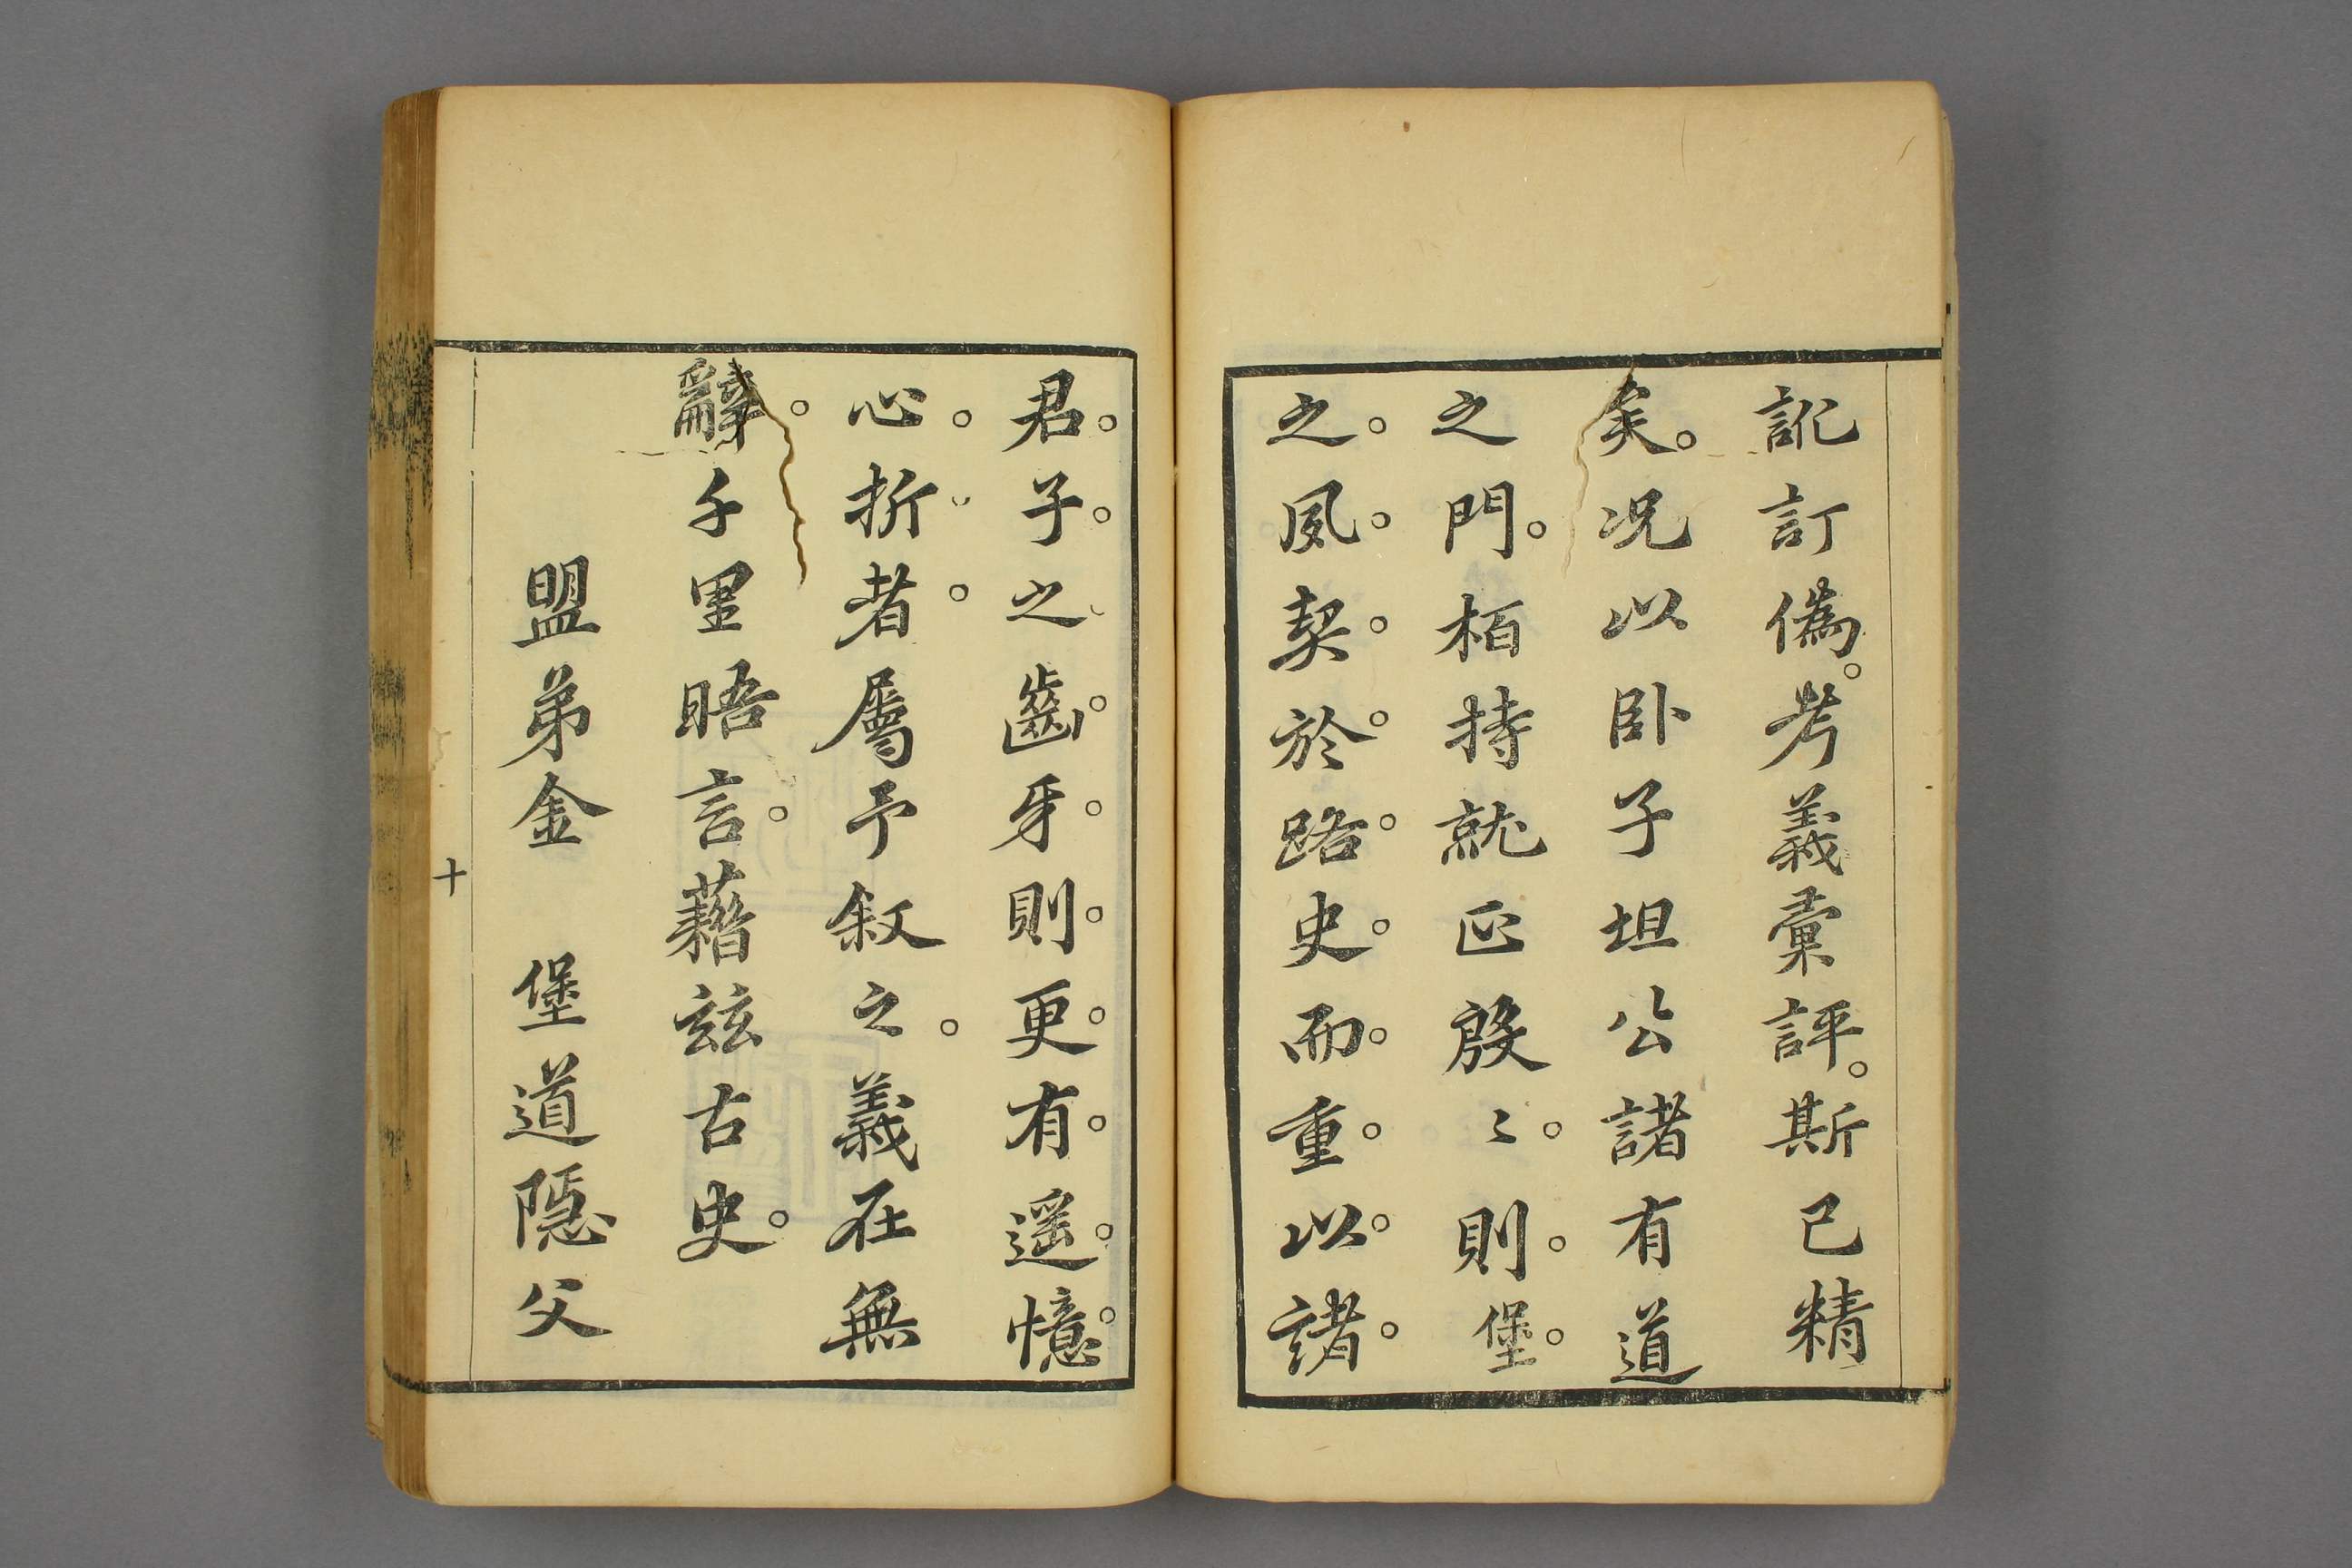 訛訂偽。考義彙評。斯已精
矣。况以卧子坦公諸有道
之門。栢持就正殷〻。則。堡。
之。夙。契。於。路。史。而。重。以。諸。
君。子。之、齒。牙。則。更。有。遥。憶。
心。折。者。屬予叙之。義在無
辭。千里晤言。藉兹古史。
盟弟金　堡道隱父
十